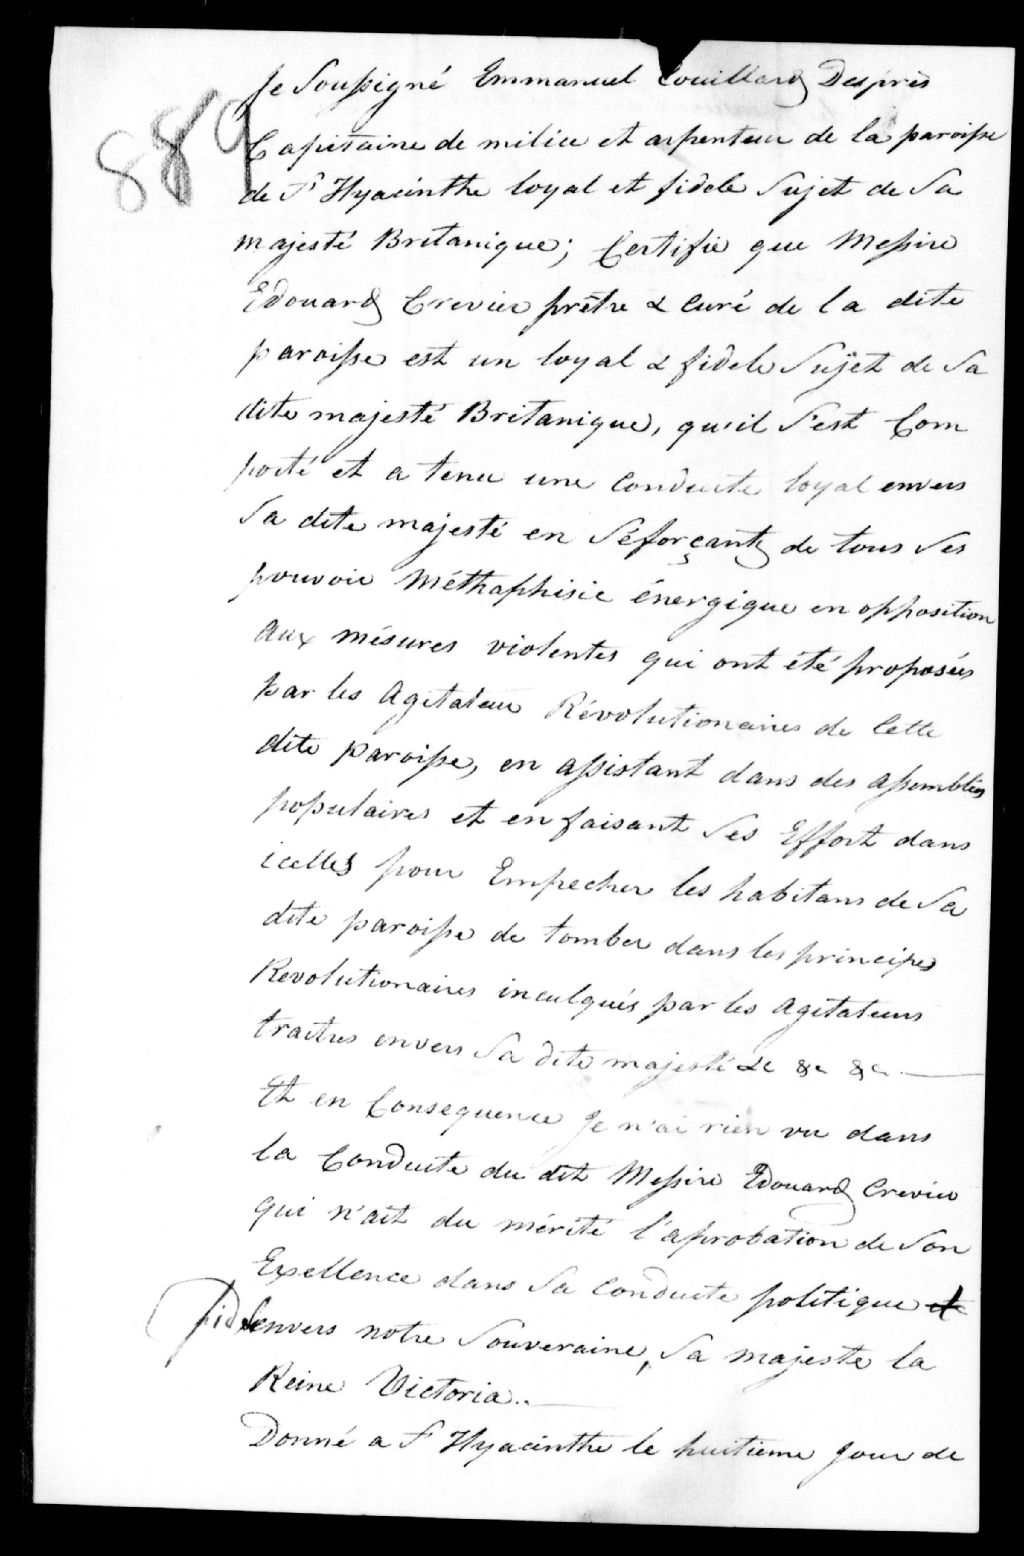 889
Je Soussigné Emmanuel Couillard Desprès
Capitaine de milice et arpenteur de la paroisse
de St Hyacinthe loyal et fidele Sujet de Sa
majesté Britanique; Certifie que Messire
Edouard Crevier prêtre & curé de la dite
paroisse est un loyal & fidele Sujet de Sa
dite majesté Britanique, qu'il S'est Com
porté et a tenu une conduite loyal envers
Sa dite majesté en S'éforçant de tous Ses
pouvoir méthaphisic énergique en opposition
aux mésures violentes qui ont été proposées
par les Agitateur Révolutionaires de Cette
dite paroisse, en assistant dans des assemblées
populaires et en faisant Ses Effort dans
icelles pour Empecher les habitans de Sa
dite paroisse de tomber dans les principes
Revolutionaires inculqués par les Agitateurs
traitres envers Sa dite majesté &c &c &c
Et en Consequence Je n'ai rien vu dans
la Conduite du dit Messire Edouard Crevier
qui n'ait du mérité l'aprobation de Son
Exellence dans Sa conduite politique et
fidel envers notre Souveraine, Sa majeste la
Reine Victoria..
Donné a St Hyacinthe le huitieme Jour de